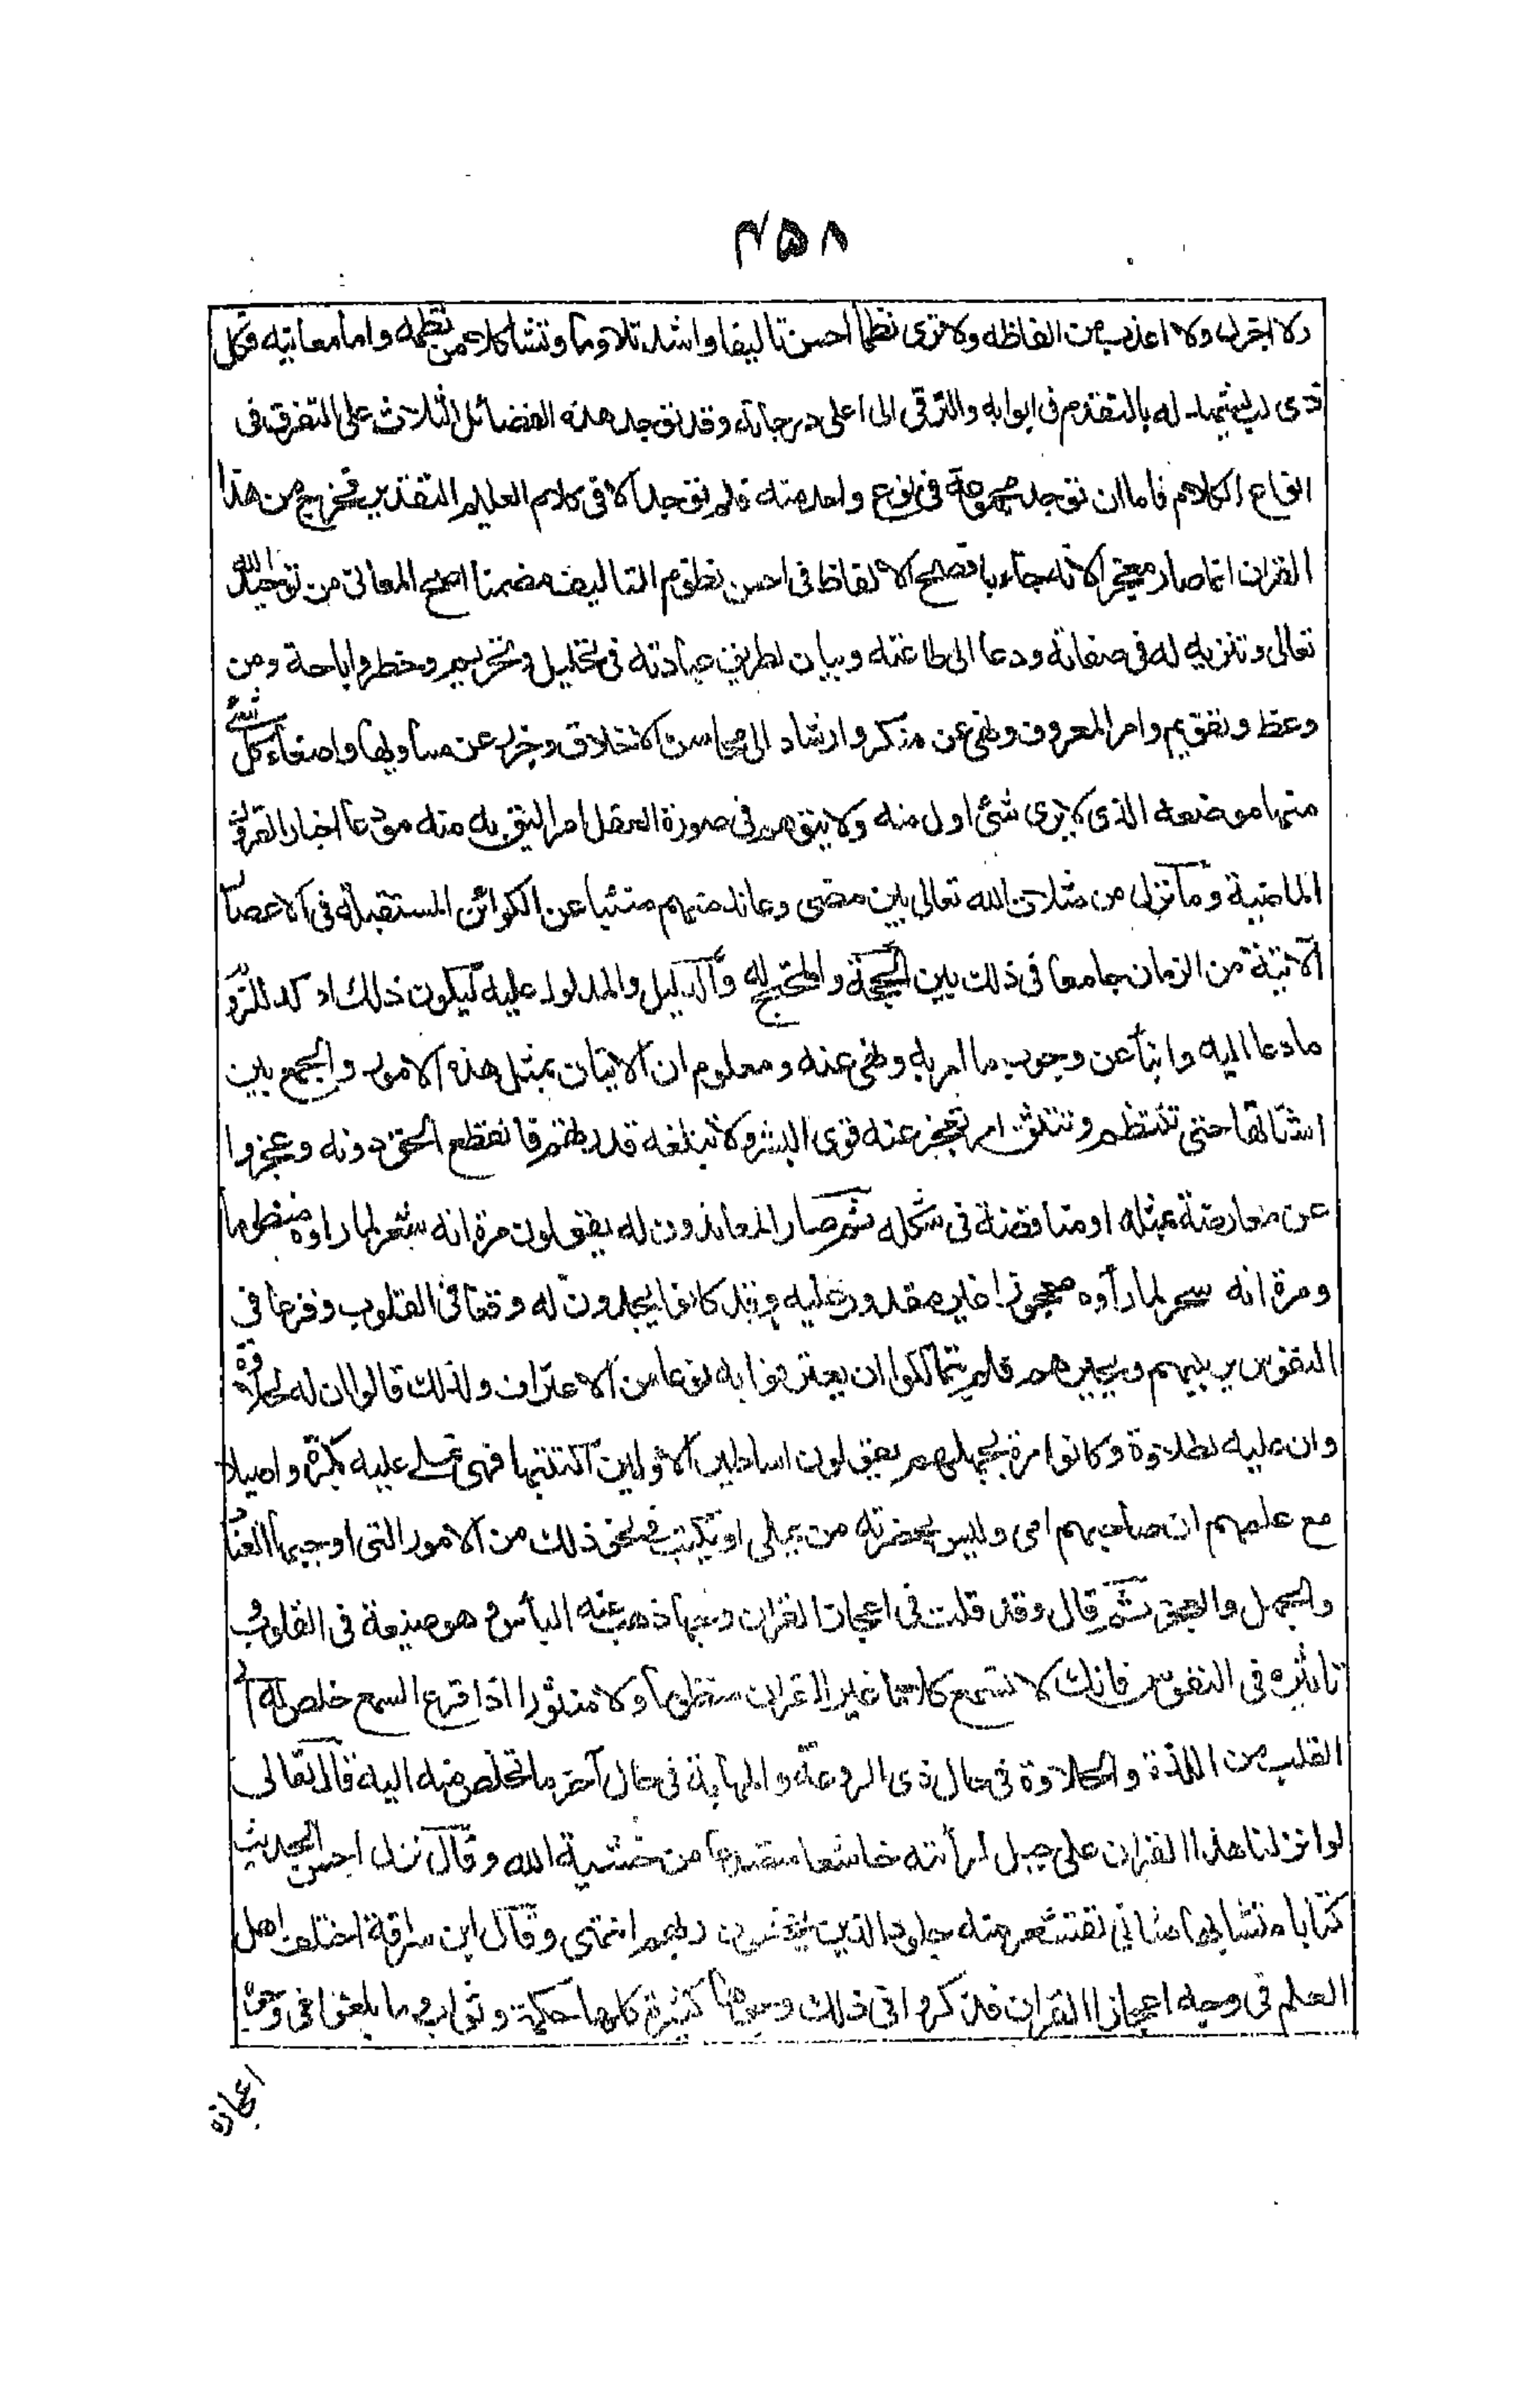 ۴۵۸
ولا اجزل ولا اعذب من الفاظه ولا ترى نظما احسن تاليفا واشد تلاوما وتشاكلا من نظمه واما معانيه فكل
ذى لب يشهد له بالتقدم فى ابوابه والترقى الى اعلى درجاته وقد توجد هذه الفضائل الثلاث على التفرق فى
انواع الكلام فاما ان توجد مجموعة فى نوع واحد منه فلم توجد الا فى كلام العليم القدير فخرج من هذا
القران انما صار معجزا لانه جاء بافصح الالفاظ فى احسن نظوم التاليف مضمنا اصح المعانى من توحيد الله
تعالى وتنزيه له فى صفاته ودعا الى طاعته وبيان لطريق عبادته فى تحليل وتحريم وحظر واباحة ومن
وعظ وتقويم وامر المعروف ونهى عن منكر وارشاد الى محاسن الاخلاق وزجر عن مساويها واضعا كل شئ
منها موضعه الذى لا يرى شئ اولى منه ولا يتوهم فى صورة العقل امر اليق به منه مودعا اخبار القرون
الماضية وما نزل من مثلات الله تعالى بمن مضى وعاند منهم منبئا عن الكوائن المستقبلة فى الاعصار
الآتية من الزمان جامعا فى ذلك بين الحجة والمحتج له والدليل والمدلول عليه ليكون ذلك اوكد للزوم
ما دعا اليه وانبأ عن وجوب ما امر به ونهى عنه ومعلوم ان الاتيان بمثل هذه الامور والجمع بين
اشتاتها حتى تنتظم وتتسق امر تعجز عنه قوى البشر ولا تبلغه قدرتهم فانقطع الخلق دونه وعجزوا
عن معارضته بمثله او مناقضته فى شكله ثم صار المعاندون له يقولون مرة انه شعر لما راوه منظوما
ومرة انه سحر لما رأوه معجوزا غير مقدور عليه وقد كانوا يجدون له وقعا فى القلوب وفزعا فى
النفوس يريبهم ويحيرهم فلم يتمالكوا ان يعترفوا به نوعا من الاعتراف ولذلك قالوا ان له لحلاوة
وان عليه لطلاوة وكانوا مرة بجهلهم يقولون اساطير الاولين اكتتبها فهى تملى عليه بكرة واصيلا
مع علمهم ان صاحبهم امى وليس بحضرته من يملى او يكتب فى نحو ذلك من الامور التى اوجبها العناد
والجهل والعجز ثم قال وقد قلت فى اعجاز القران وجها ذهب عنه الناس وهو صنيعه فى القلوب و
تاثيره فى النفوس فانك لا تسمع كلاما غير القران منظوما ولا منثورا اذا قرع السمع خلص له الى
القلب من اللذة والحلاوة فى حال ذى الروعة والمهابة فى حال آخر ما يخلص منه اليه قال تعالى
لو انزلنا هذا القران على جبل لرأيته خاشعا متصدعا من خشية الله وقال نزل احسن الحديث
كتابا متشابها مثانى تقشعر منه جلود الذين يخشون ربهم انتهى وقال ابن سراقة اختلف اهل
العلم فى وجه اعجاز القران فذكروا فى ذلك وجوها كثيرة كلها حكمة وثواب وما بلغوا فى وجوه
اعجازه